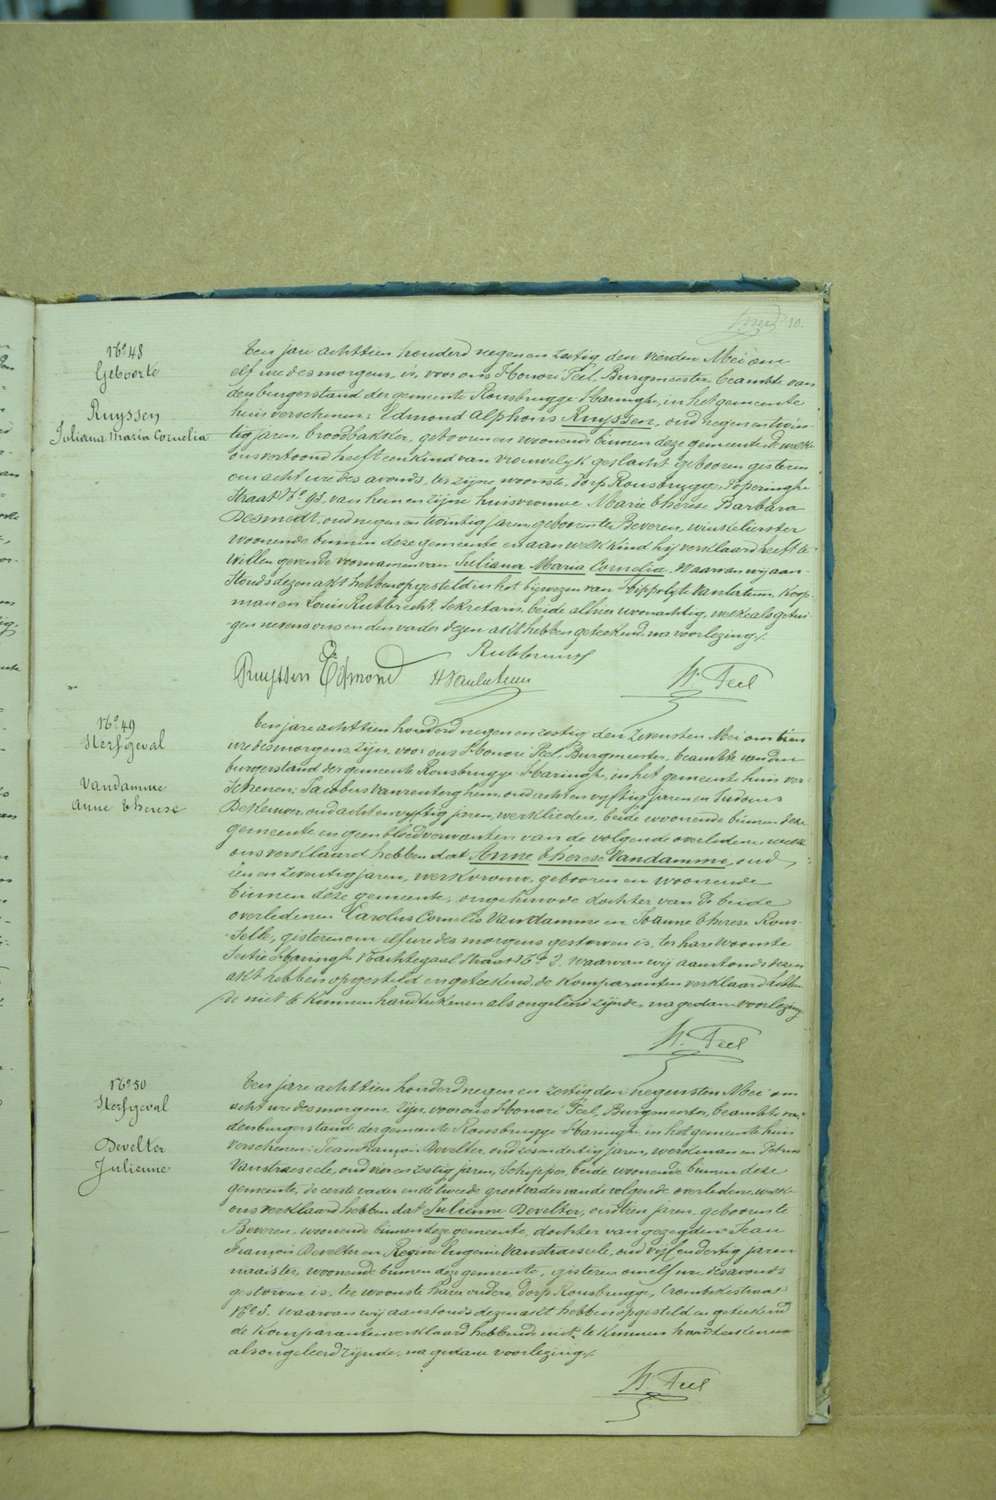 10.
N.º 48
Geboorte
Ruyssen
Juliana Maria Cornelia
Ten jare achttien honderd negen en zestig den vierden Mei om
elf ure des morgens, is, voor ons Honoré Feel, Burgmeester, beambte van
den burgerstand der gemeente Rousbrugge-Haringhe, in het gemeente
huis verschenen: Edmond Alphons Ruyssen, oud negen en twin-
tig jaren, broodbakker, geboren en wonende binnen deze gemeente, welk
ons vertoond heeft een kind van vrouwelijk geslacht, geboren gisteren
om acht ure des avonds, ter zijne woonste, dorp Rousbrugge, Poperinghe
straat N.º 93, van hem en zijne huisvrouwe Marie Therese Barbara
Desmedt, oud negen en twintig jaren, geboren te Beveren, winkelierster
woonende binnen deze gemeente en aan welk kind hij verklaard heeft te
willen geven de voornamen van Juliana Maria Cornelia. Waarvan wij aan-
stonds dezen akt hebben opgesteld in het bijwezen van Hippolyte Vanlertum, koop-
man en Louis Rubbrecht, sekretaris, beide alhier woonachtig, welke als getui-
gen nevens ons en den vader dezen akt hebben geteekend, na voorlezing.
Ruyssen Edmond
H. Feel
N.º 49
Sterfgeval
Vandamme
Anne Therese
Ten jare achttien honderd negen en zestig den zevensten Mei om tien
ure des morgens zijn, voor ons Honoré Feel, Burgmeester, beambte van den
burgerstand der gemeente Rousbrugge-Haringhe, in het gemeente huis ver-
schenen: Jacobus Vanrenterghem, oud acht en vyftig jaren en Ludovicus
Dekervor, oud acht en vyftig jaren, werklieden, beide woonende binnen deze
gemeente, en geen bloedverwanten van de volgende overledene, welke
ons verklaard hebben dat Anne Therese Vandamme, oud
een en zeventig jaren, werkvrouw, geboren en woonende
binnen deze gemeente, ongehuwde dochter van de beide
overledenen Carolus Cornelis Vandamme en Joanne Therese Rous-
selle, gisteren om elf ure des morgens gestorven is, ter hare woonste
sectie Haringhe Nachtegaal straat N.º 2. Waarvan wij aanstonds dezen
akt hebben opgesteld en geteekend, de komparanten verklaard hebben-
de niet te konnen handteekenen als ongeleerd zijnde, na gedane voorlezing
H. Feel
N.º 50
Sterfgeval
Develter
Julienne
Ten jare achttien honderd negen en zestig den negensten Mei om
acht ure des morgens zijn, voor ons Honoré Feel, Burgmeester, beambte van
den burgerstand der gemeente Rousbrugge-Haringhe in het gemeente huis
verschenen: Jean François Develter, oud zes en dertig jaren, werkman en Petrus
Vanstraeseele, oud vier en zestig jaren, schipper, beide woonende binnen deze
gemeente, de eerste vader en de tweede grootvader van de volgende overledene, welke
ons verklaard hebben dat Julienne Develter, oud tien jaren, geboren te
Beveren, woonende binnen deze gemeente, dochter van gezegden Jean
François Develter en Regine Eugenie Vanstraeseele, oud vijf en dertig jaren
naaister, woonende binnen deze gemeente, gisteren om elf ure des avonds
gestorven is, ter woonste harer ouders, dorp Rousbrugge, Crombekestraat
N.º 5. Waarvan wij aanstonds dezen akt hebben opgesteld en geteekend
de komparanten verklaard hebbende niet te kunnen handteekenen
als ongeleerd zijnde, na gedane voorlezing.
H. Feel